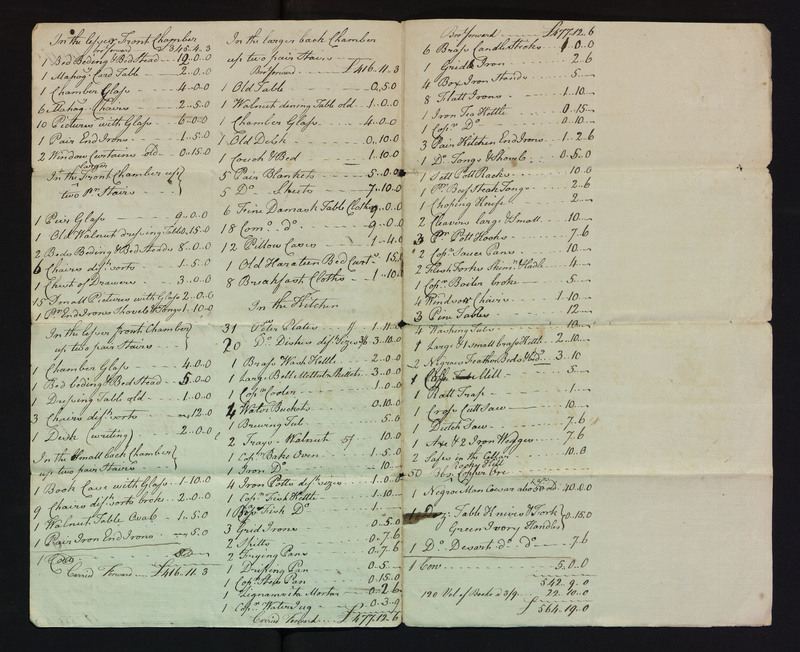 In the lesser Front Chamber
Bro.t forward £345.4.3
1 Bed Beding & Bed Stead — 19..0..0
1 Mahog.y Card Table — 2..0..0
1 Chamber Glass — 4..0..0
6 Mahog.y Chairs — 2..5.0
10 Pictures with Glass — 6..0..0
1 Pair End Irons — 1..5.0
2 Window Curtains old — 0.15.0
In the larger Front Chamber up
two Pr. Stairs
1 Peir Glass — 9..0..0
1 Old Walnut dressing Table .15.0
2 Beds Beding & Bed Steads 8..0..0
6 Chairs diff.t sorts — 1..5.0
1 Chest of Drawers — 3..0..0
15 Small Pictures with Glass 2..0..0
1 Pr. End Irons Shovel & Tongs 1..10.0
In the lesser front Chamber
up two pair Stairs
1 Chamber Glass — 4.0.0
1 Bed beding & Bed Stead — 5.0.0
1 Dressing Table old — 1.0.0
3 Chairs diff.t sorts — 12.0
1 Desk (writing) — 2..0..0
In the Small back Chamber
up two pair Stairs
1 Book Case with Glass — 1.10.0
9 Chairs diff.t sorts broke — 2..0..0
1 Walnut Table Oval — 1..5.0
1 Pair Iron End Irons — 5.0
1 Cow
Carrid Forward — £416..11.3
In the larger back Chamber
up two pair Stairs
Bro.t forward — £416..11.3
1 Old Table — 0..5.0
1 Walnut dining Table old — 1..0..0
1 Chamber Glass — 4.0.0
1 Old Desk — 0..10.0
1 Couch & Bed — 1.10.0
5 Pair Blankets — 5..0..0
5 D.o Sheets — 7..10.0
6 Fine Damask Table Cloths 9..0..0
18 Com.n d.o — 9..0..0
12 Pillow Cases — 1..4.0
1 Old Harateen Bed Curt.s — 15.0
8 Breakfast Cloths — 1..10.0
In the Kitchen
31 Puter Plates
20 D.o Dishes diff.t sizes 3.10.0
1 Brass Wash Kettle — 2..0..0
1 Large Bell Mettal Skillett 3..0..0
1 Cop.r Cooler — 1..0.0
4 Water Buckets — 0.10.0
1 Brewing Tub — 5.0
2 Trays Walnut 5/ 10.0
1 Cop.r Bake Oven — 1..5.0
1 Iron D.o — 10
1 Iron Potts diff.t sizes — 1..0.0
1 Cop.r Fish Kettle — 1..10
1 Fish D.o — 1
3 Grid Irons — 0..5.0
2 Spitts — 0.7.6
2 Frying Pans — 0.7.6
1 Dripping Pan — 0..5
1 Cop.r Stew Pan — 0.15.0
1 Lignamvita Mortar — 0..2.6
1 Cop.r Water Jug — 0..3.9
Carrid Forward — £477.12.6
Bro.t forward — £477.12.6
6 Brass Candlesticks — 1.0.0
1 Gridle Iron — 2.6
4 Box Iron Stands — 5
8 Flatt Irons — 1..10
1 Iron Tea Kettle — 0.15
1 Cop.r D.o — 0..10
3 Pair Kitchen End Irons — 1..2.6
1 D.o Tongs & Shovels — 0..5.0
1 Sett Pott Racks — 10.0
1 Pr. Beef Steak Tongs — 2..6
1 Choping Knife — 2
2 Cleavers large & small — 10
3 Pr. Pott Hooks — 7.6
2 Cop.r Sauce Pans — 10
2 Flesh Forks Skim.r & Ladle — 4
1 Cop.r Boiler broke — 5
4 Windsor Chairs — 1..10
3 Pine Tables — 12
4 Washing Tubs — 10
1 Large & 1 small brass Kettle — 2..10
2 Negroes Feather Beds & Bd.g — 3..10
1 Mill — 5
1 Ratt Trap — 1
1 Cross Cutt Saw — 10
1 Dutch Saw — 7.6
1 Axe & 2 Iron Wedges — 7.6
2 Safes in the Cellar — 10.0
Rocky Hill
50 lb Copper Ore
1 Negro Man Caesar abo.t 50 y.rs old — 40.0.0
1 Doz: Table Knives & Fork
Green Ivory Handles — 0.15.0
1 D.o Desert d.o d.o — 7.6
1 Cow — 5.0.0
542.9.0
120 Vol of Books a 3/9 — 22.10.0
£564.19.0